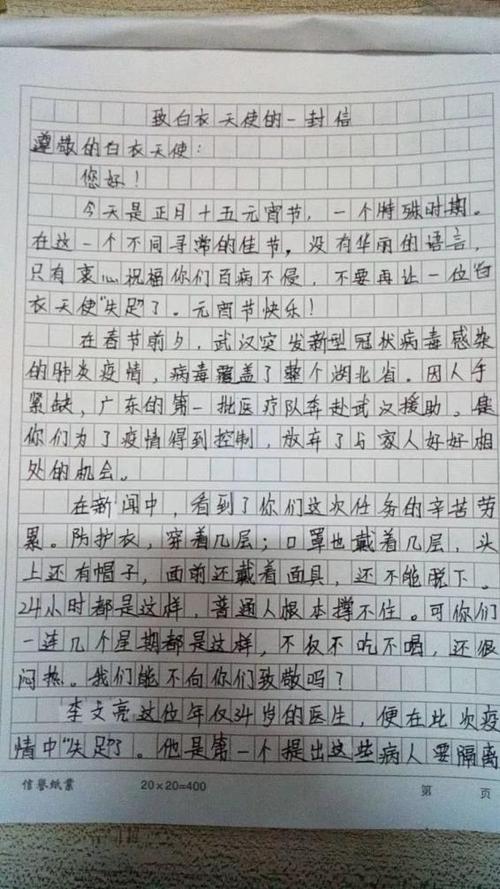 致白衣天使的一封信
尊敬的白衣天使：
您好！
今天是正月十五元宵节，一个特殊时期。
在这一个不同寻常的佳节，没有华丽的语言，
只有衷心祝福你们百病不侵，不要再让一位白
衣天使“失足”了。元宵节快乐！
在春节前夕，武汉突发新型冠状病毒感染
的肺炎疫情，病毒覆盖了整个湖北省。因人手
紧缺，广东的第一批医疗队奔赴武汉援助。是
你们为了疫情得到控制，放弃了与家人好好相
处的机会。
在新闻中，看到了你们这次任务的辛苦劳
累。防护衣，穿着几层；口罩也戴着几层，头
上还有帽子，面前还戴着面具，还不能脱下。
24小时都是这样，普通人根本撑不住。可你们
一连几个星期都是这样，不仅不吃不喝，还很
闷热。我们能不向你们致敬吗？
李文亮这位年仅34岁的医生，便在此次疫
情中“失足”了。他是第一个提出这些病人要隔离
信誉纸业 20×20=400 第 页